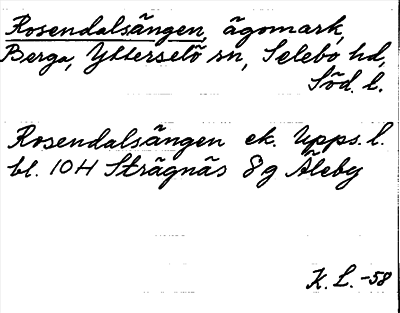 Rosendalsängen, ägomark,
Berga, Ytterselö sn, Selebo hd,
Söd. l.
Rosendalsängen ek. Upps. l.
bl. 10H Strägnäs 8g Åleby
K. L. -58